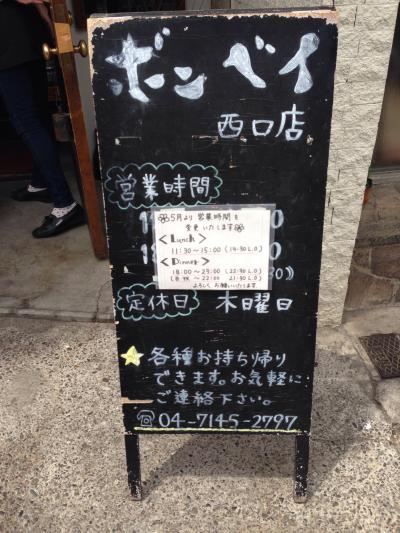 ボンベイ
西口店
営業時間
❀5月より営業時間を
変更いたします❀
<Lunch>
11:30~15:00 (14:30 L.O)
<Dinner>
18:00~23:00 (22:30 L.O)
~22:00 21:30 L.O)
よろしくお願いいたします
定休日 木曜日
★各種お持ち帰り
できます。お気軽に
ご連絡下さい。
☎04-7145-2797